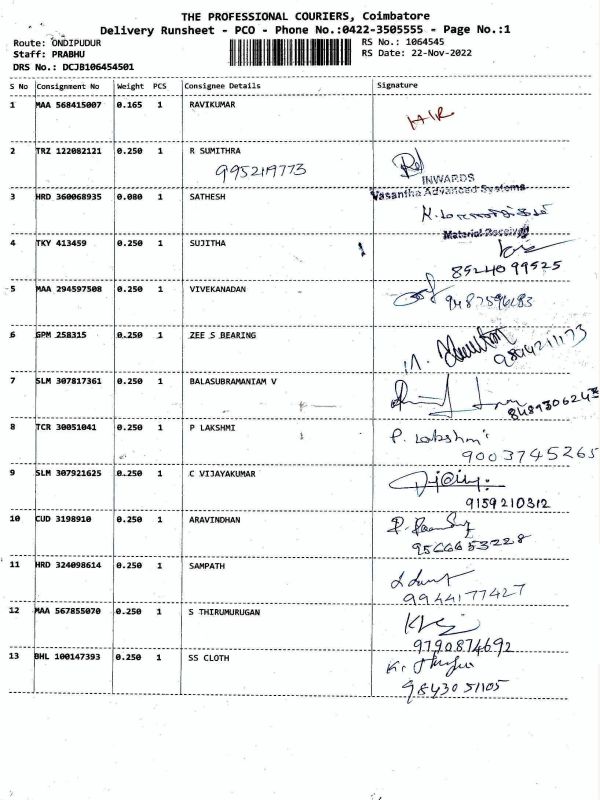 THE PROFESSIONAL COURIERS, Coimbatore
Delivery Runsheet - PCO - Phone No.:0422-3505555 - Page No.:1
Route: ONDIPUDUR
RS No.: 1064545
Staff: PRABHU
RS Date: 22-Nov-2022
DRS No.: DCJB106454501
S No Consignment No Weight PCS Consignee Details Signature
1 MAA 568415007 0.165 1 RAVIKUMAR
2 TRZ 122082121 0.250 1 R SUMITHRA
9952119773
INWARDS
Vasantha Advanced Systems
3 HRD 360068935 0.080 1 SATHESH
Material Received
4 TKY 413459 0.250 1 SUJITHA
8524099525
5 MAA 294597508 0.250 1 VIVEKANADAN
9487596183
6 GPM 258315 0.250 1 ZEE S BEARING
9894211173
7 SLM 307817361 0.250 1 BALASUBRAMANIAM V
8 TCR 30051041 0.250 1 P LAKSHMI P. Lakshmi
9003745265
9 SLM 307921625 0.250 1 C VIJAYAKUMAR
9159210312
10 CUD 3198910 0.250 1 ARAVINDHAN
9566653228
11 HRD 324098614 0.250 1 SAMPATH
9944177427
12 MAA 567855070 0.250 1 S THIRUMURUGAN
9790874692
13 BHL 100147393 0.250 1 SS CLOTH
9843051105